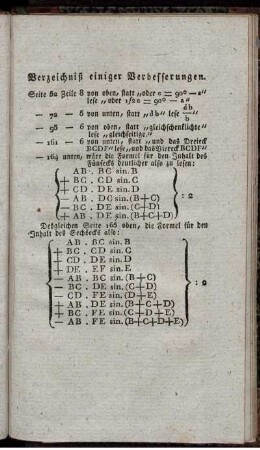 Verzeichniß einiger Verbesserungen.
Seite 52 Zeile 8 von oben, statt „oder o = 90° — a“
lese „oder 1/2 o = 90° — a“
— 72 — 5 von unten, statt „ab“ lese
— 95 — 6 von oben, statt „gleichschenklichte“
lese „gleichseitige.“
— 161 — 6 von unten, statt „und das Dreieck
BCDF“ lese „und das Viereck BCDF“
— 164 unten, wäre die Formel für den Inhalt des
Fünfecks deutlicher also zu lesen:
AB . BC sin. B
+ BC . CD sin. C
+ CD . DE sin. D
— AB . DC sin. (B+C) : 2
— BC . DE sin. (C+D)
+ AB . DE sin. (B+C+D)
Desgleichen Seite 165 oben, die Formel für den
Inhalt des Sechsecks also:
AB . BC sin. B
+ BC . CD sin. C
+ CD . DE sin. D
+ DE . EF sin. E
— AB . BC sin. (B+C)
— BC . DE sin. (C+D) : 2
— CD . FE sin. (D+E)
+ AB . DE sin. (B+C+D)
+ BC . FE sin. (C+D+E)
— AB . FE sin. (B+C+D+E)